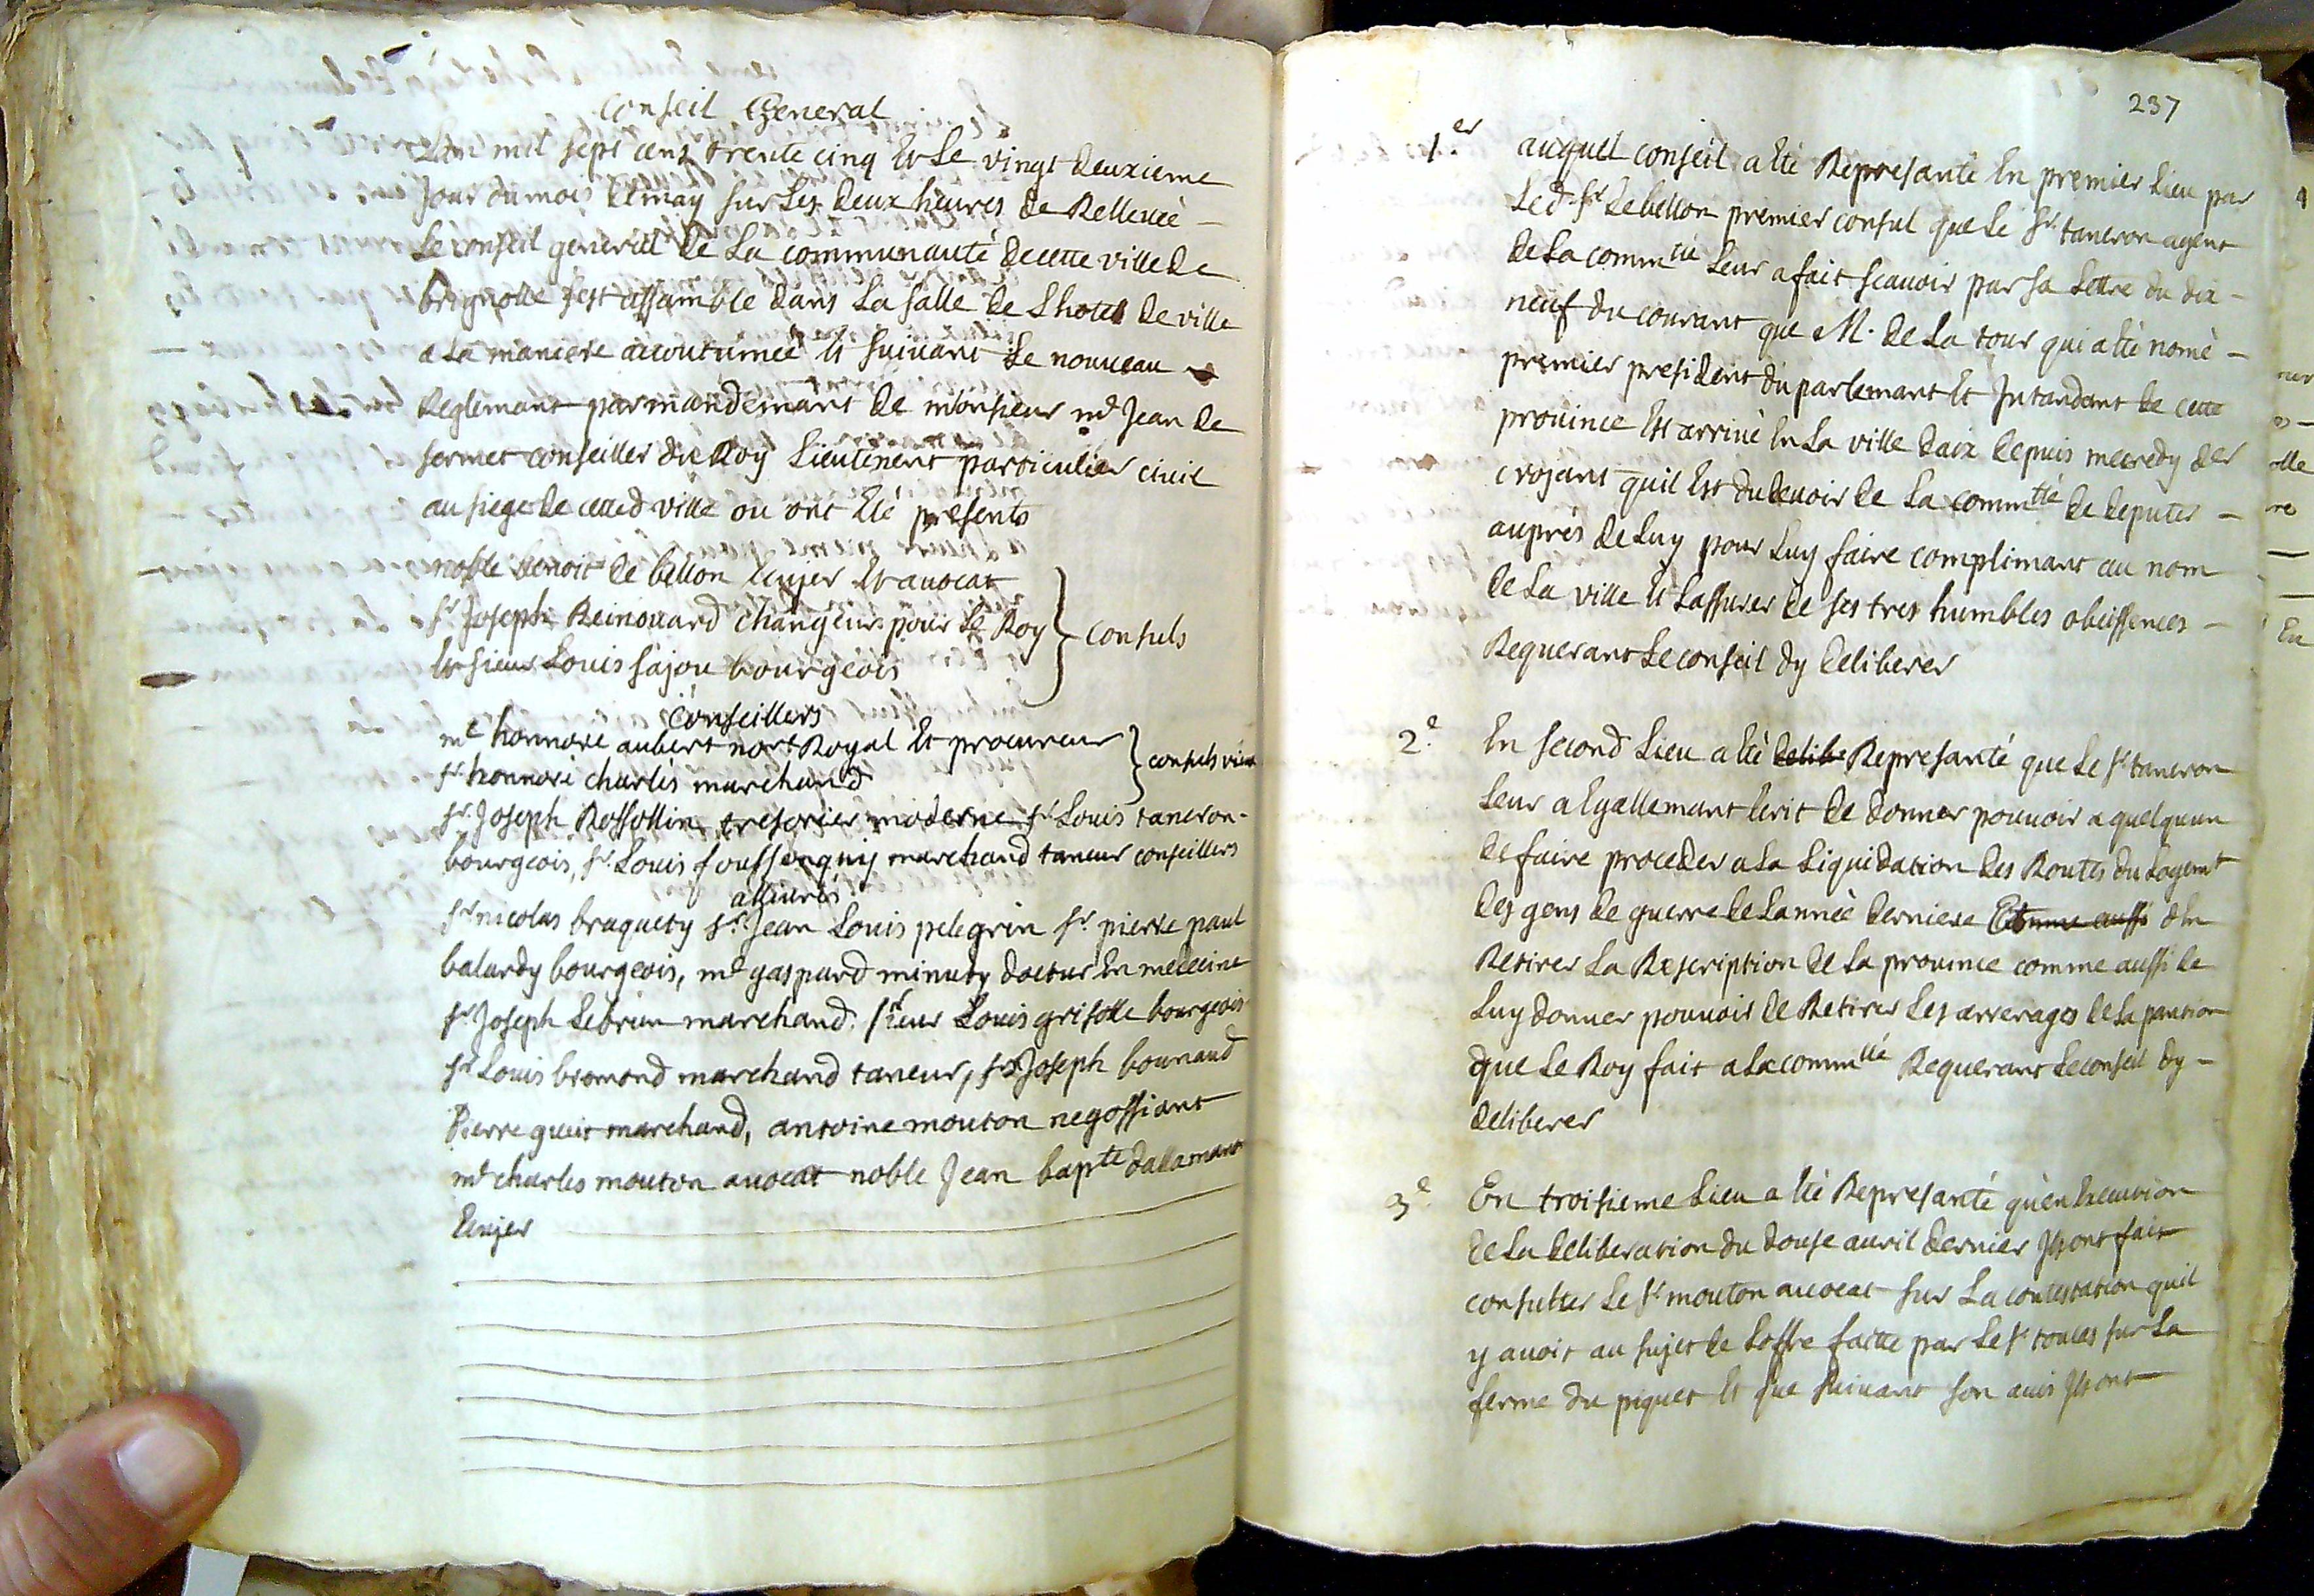 Conseil General
Lan mil sept cens trente cinq et Le vingt deuxieme
Jour du mois de may sur Les deux heures de Rellevee
Le conseil general de La communauté de cette ville de
brignolle sest assamblé dans La salle de Lhotel de ville
a La maniere accoutumée et suivant Le nouveau
Reglemant par mandemant de monsieur me Jean de
fermet conseiller du Roy Lieutenent particulier civil
au siege de cetted ville ou ont eté presents
noble benoit de bellon ecujer et avocat
sr Joseph Reinouard changeur pour Le Roy
et sieur Louis sajou bourgeois
} consuls
Conseillers
me honnoré aubert nore Royal et procureur
sr honnoré charles marchand
} consuls vieux
sr Joseph Rossollin tresorier moderne sr Louis taneron
bourgeois, sr Louis foussenquy marchand taneur conseillers
alliurés
sr nicolas braquety sr Jean Louis pelegrin sr pierre paul
balardy bourgeois, me gaspard minuty doctur en medecine
sr Joseph Lebrun marchand sieur Louis grisolle bourgeois
sr Louis bremond marchand taneur, sr Joseph bouraud
Pierre gueit marchand, antoine mouton negossiant
me charles mouton avocat noble Jean bapte dallamant
Ecujer
237
1.er auquel conseil a eté Represanté en premier Lieu par
Led. sr de bellon premier consul que Le sr taneron agent
de La commté Leur a fait scavoir par sa Lettre du dix-
neuf du courant que M. de La tour qui a eté nomé
premier president du parlemant et Intandant de cette
province Est arrivé en La ville daix depuis mecredy der
croyant quil Est du devoir de La commté de deputer
auprés de Luy pour Luy faire complimant au nom
de La ville et Lassurer de ses tres humbles obeissences
Requerant Le conseil dy deliberer
2.e En second Lieu a eté delibe Represanté que Le sr taneron
Leur a Egallemant Ecrit de donner pouvoir a quelquun
de faire proceder a La Liquidation des Routes du Logemt
des gens de guerre de Lannée derniere Comme aussi den
Retirer La Rescription de La province comme aussi de
Luy donner pouvoir de Retirer Les arrerages de La pantion
que Le Roy fait a La commté Requerant Le conseil dy
deliberer
3.e En troisieme Lieu a eté Represanté quen execution
de La deliberation du douse avril dernier Ils ont fait
consulter Le sr mouton avocat sur La contestation quil
y avoit au sujet de Loffre faitte par Le sr toucas sur La
ferme du piquet et que suivant son avis Ils ont